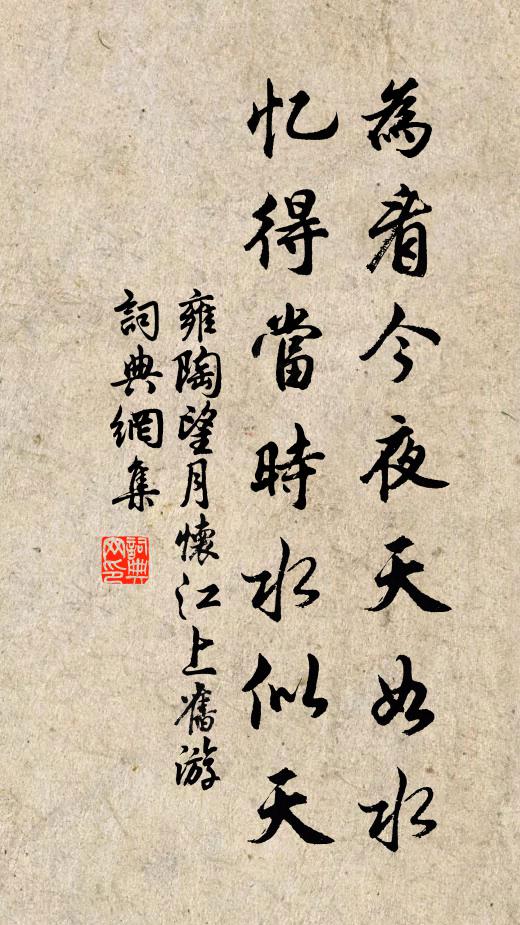 為看今夜天如水
忆得當時水似天
雍陶望月懷江上舊游
詞典網集
詞典網印